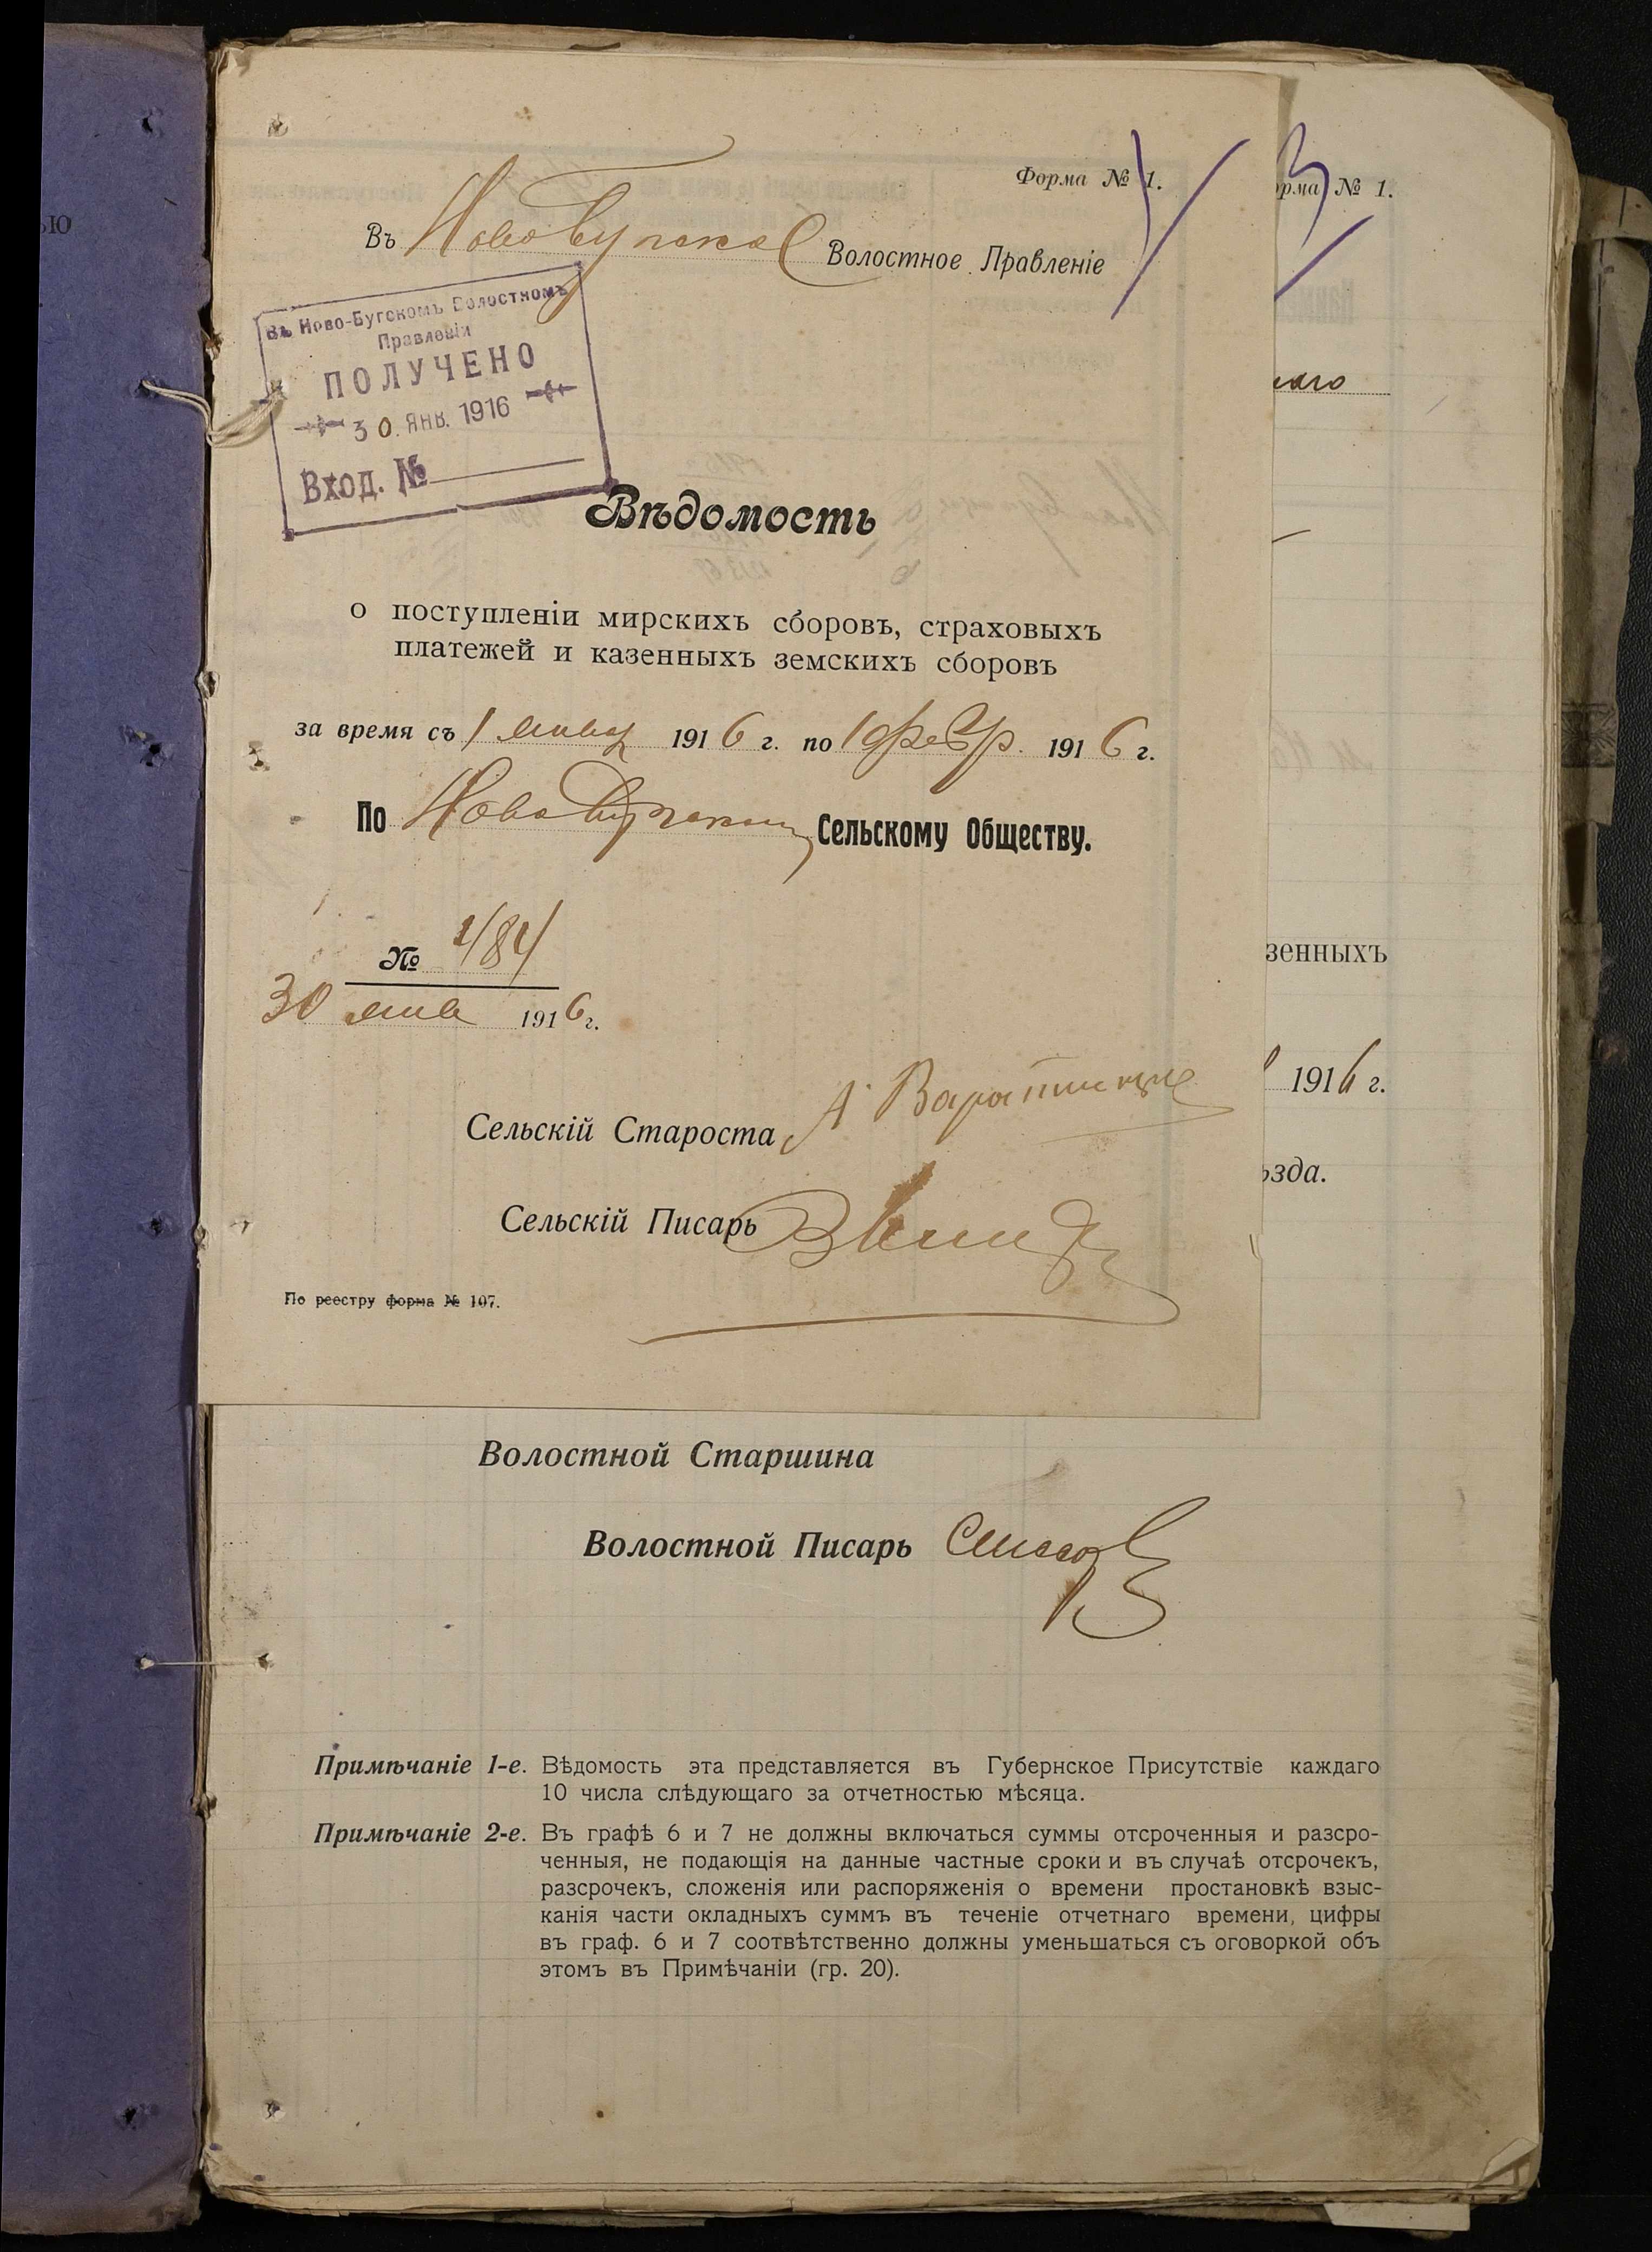 Форма № 1.
рма № 1.
Въ Новобугское Волостное Правленіе
Въ Ново-Бугскомъ Волостномъ
Правленіи
ПОЛУЧЕНО
30. ЯНВ. 1916
Вход. №
Вѣдомость
о поступленіи мирскихъ сборовъ, страховыхъ
платежей и казенныхъ земскихъ сборовъ
за время съ 1 января 1916 г. по 1 февр. 1916 г.
По Новобугскому Сельскому Обществу.
№ 484
30 янв 1916 г.
ью
зенныхъ
1916 г.
ѣзда.
Сельскій Староста
Сельскій Писарь
По реестру форма № 107.
Волостной Старшина
Волостной Писарь
Примѣчаніе 1-е. Вѣдомость эта представляется въ Губернское Присутствіе каждаго
10 числа слѣдующаго за отчетностью мѣсяца.
Примѣчаніе 2-е. Въ графѣ 6 и 7 не должны включаться суммы отсроченныя и разсро-
ченныя, не подающія на данные частные сроки и въ случаѣ отсрочекъ,
разсрочекъ, сложенія или распоряженія о времени простановкѣ взыс-
канія части окладныхъ суммъ въ теченіе отчетнаго времени, цифры
въ граф. 6 и 7 соотвѣтственно должны уменьшаться съ оговоркой объ
этомъ въ Примѣчаніи (гр. 20).